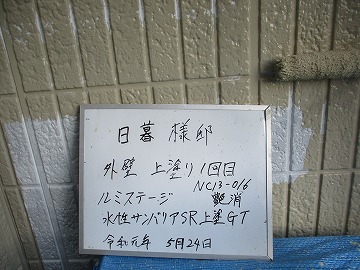 日暮 様邸
外壁 上塗り 1回目
NC13-016
ルミステージ 艶消
水性サンバリアSR上塗GT
令和元年 5月24日